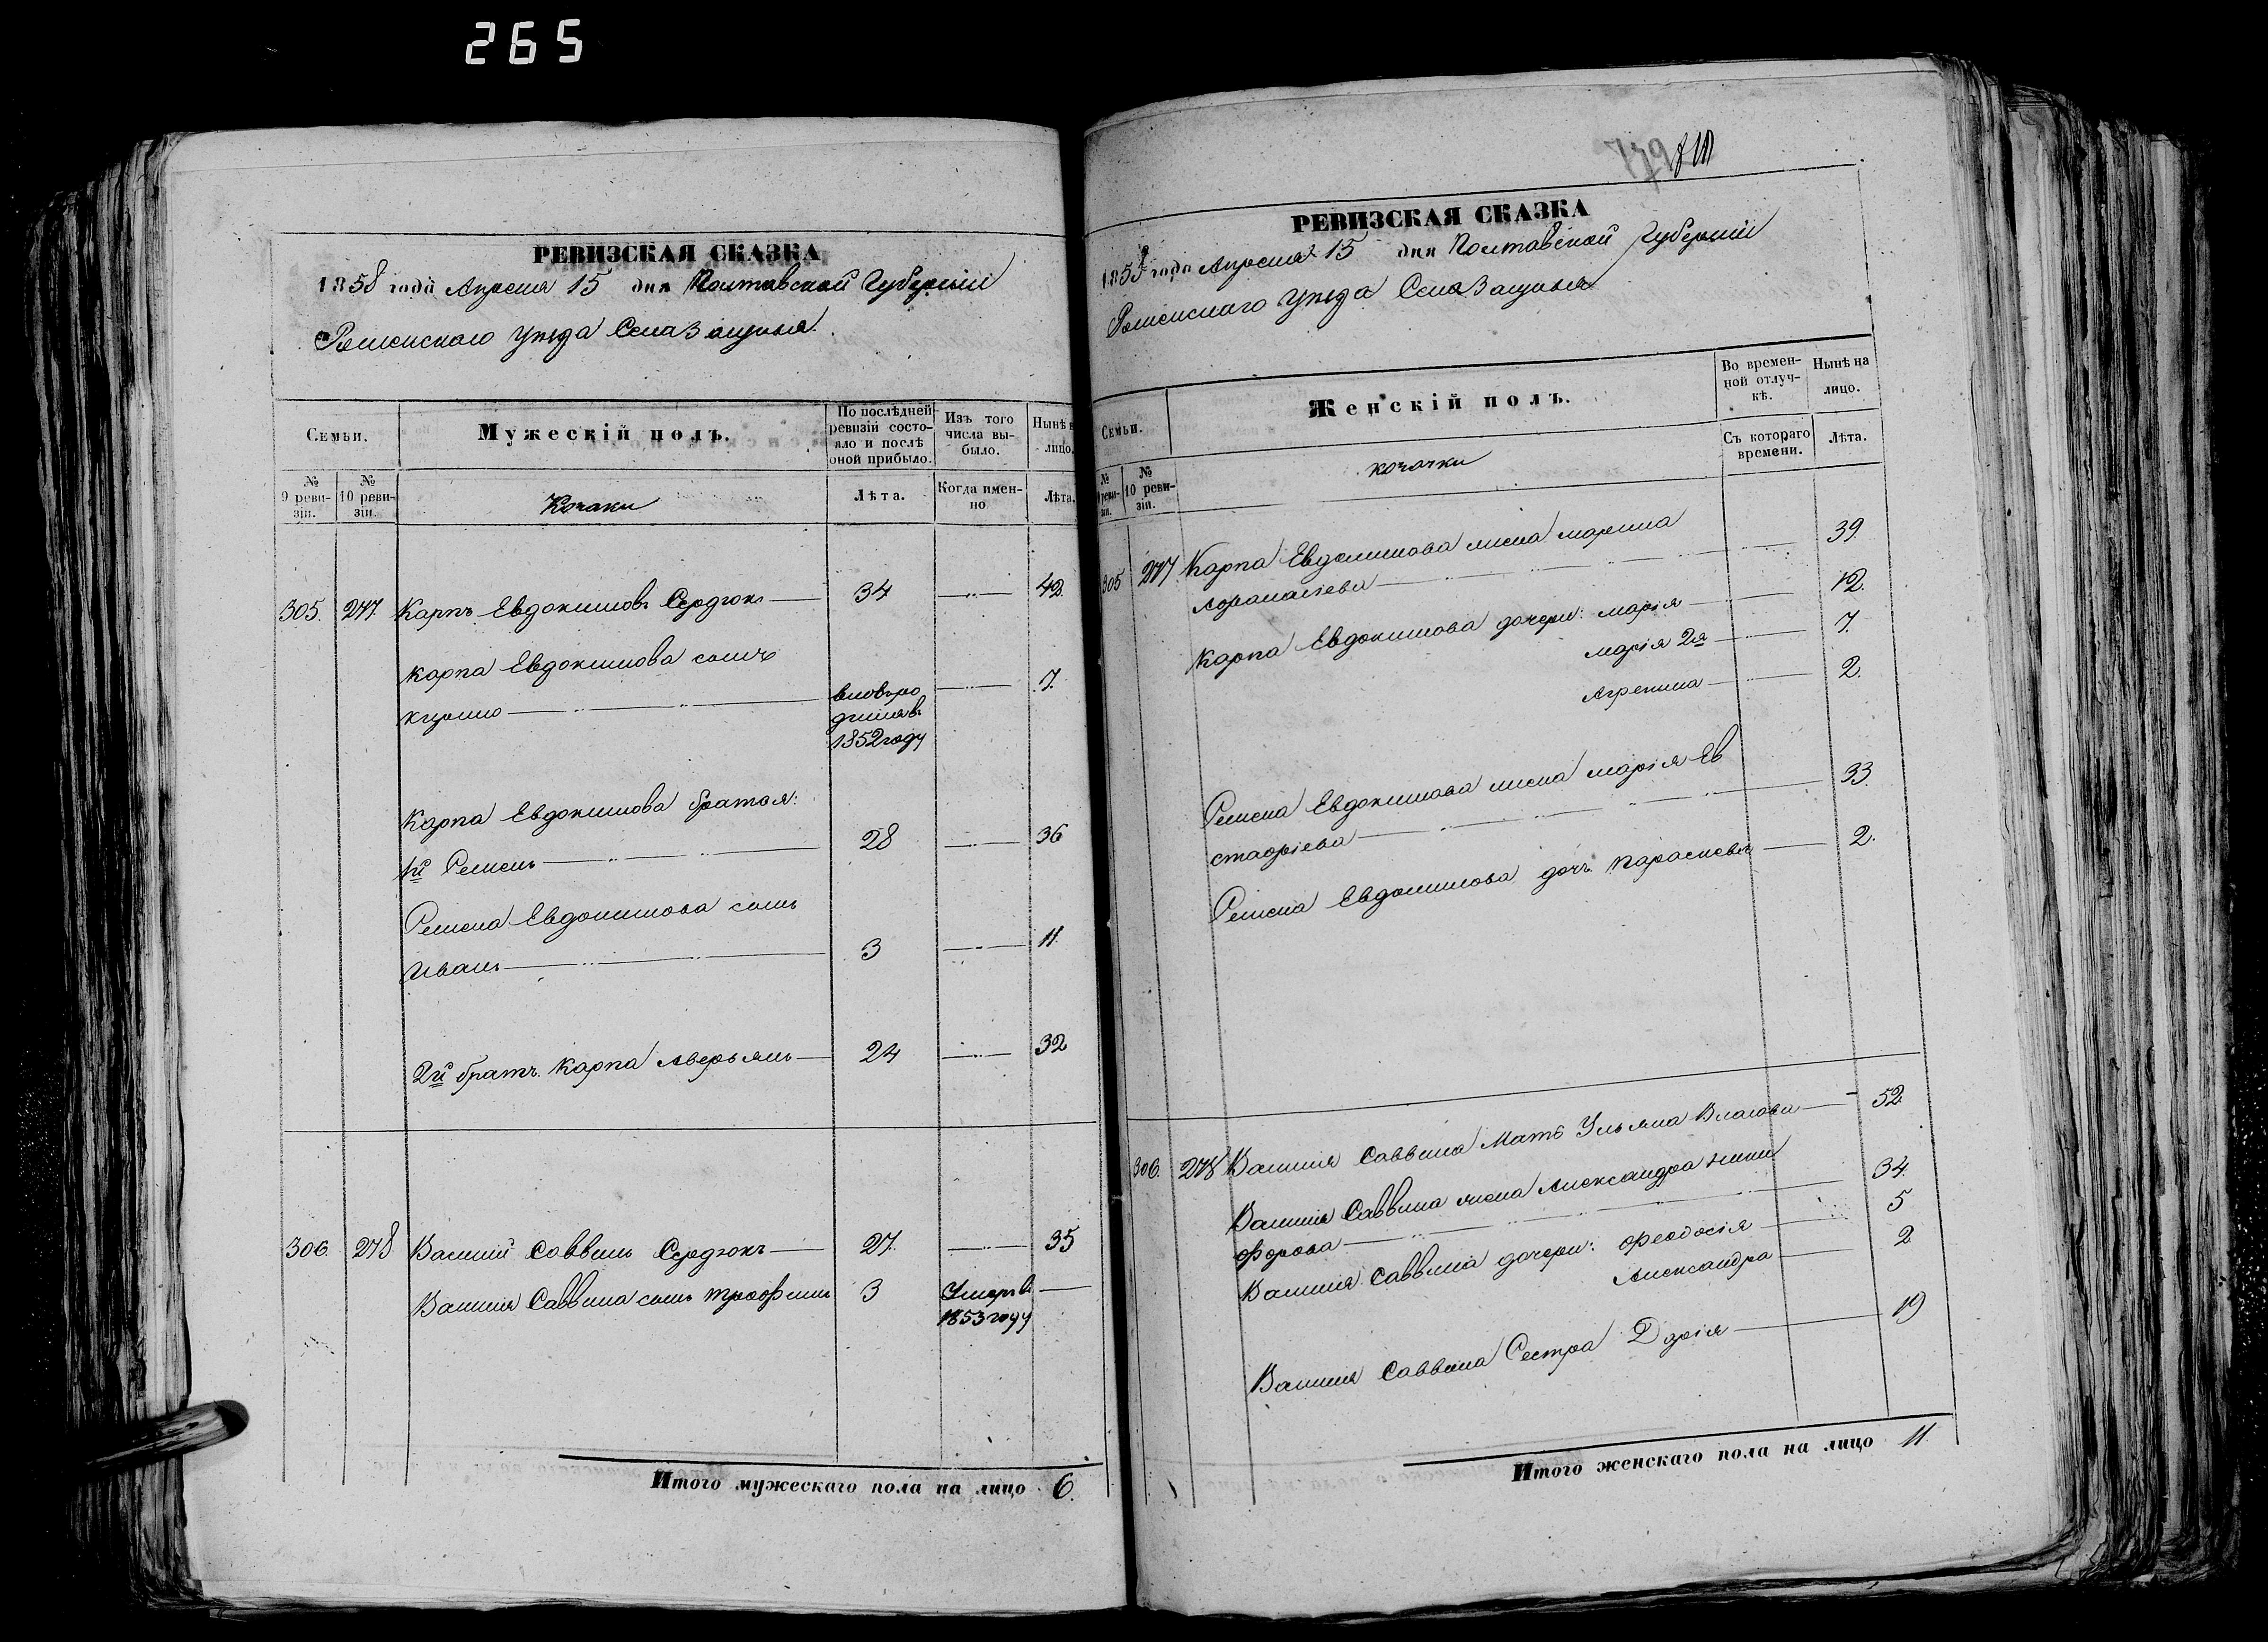 265
РЕВИЗСКАЯ СКАЗКА
1858 года Апреля 15 дня Полтавской Губерніи
Роменскаго уезда Села Защпья
Семьи.
Мужескій полъ.
По послѣдней ревизіи состояло и послѣ оной прибыло.
Изъ того числа выбыло.
Нынѣ на лицо.
№ 9 ревизіи.
№ 10 ревизіи.
Козаки
Лѣта.
Когда именно
Лѣта.
305. 277. Карпъ Евдокимовъ Сердюкъ 34 42.
Карпа Евдокимова сынъ
Кирило вновьро 7.
дился въ
1852 году
Карпа Евдокимова братья:
1й Семенъ 28 36
Семена Евдокимова сынъ
Иванъ 3 11.
2й братъ Карпа Аверьянъ 24 32
306. 278 Василій Саввинъ Сердюкъ 27. 35
Василія Саввина сынъ Трофимъ 3 Умеръ въ
1853 году
Итого мужескаго пола на лицо 6.
779
РЕВИЗСКАЯ СКАЗКА
1858 года Апреля 15 дня Полтавской Губерніи
Роменскаго уезда Села Защпья
Семьи.
Женскій полъ.
Во временной отлучкѣ.
Нынѣ на лицо.
№ 9 ревизіи.
№ 10 ревизіи.
козачки
Съ котораго времени.
Лѣта.
305 277 Карпа Евдокимова жена Марина 39.
Афанасіева
Карпа Евдокимова дочери: Марія 12.
Марія 2я 7.
Агрепина 2.
Семена Евдокимова жена Марія Ев
стафіева 33.
Семена Евдокимова дочь Параскевія 2.
306. 278 Василія Саввина Мать Ульяна Власова 52.
Василія Саввина жена Александра Ники
форова 34.
Василія Саввина дочери: Феодосія 5
Александра 2
Василія Саввина Сестра Дарія 19
Итого женскаго пола на лицо 11.